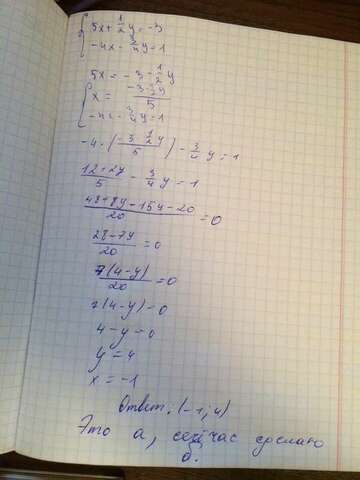 { 5x + 1/2 y = -3
-4x - 3/4 y = 1
5x = -3 - 1/2 y
{ x = (-3 - 1/2 y)/5
-4x - 3/4 y = 1
-4 · ((-3 - 1/2 y)/5) - 3/4 y = 1
(12 + 2y)/5 - 3/4 y = 1
(48 + 8y - 15y - 20)/20 = 0
(28 - 7y)/20 = 0
7(4 - y)/20 = 0
7(4 - y) = 0
4 - y = 0
y = 4
x = -1
Ответ: (-1; 4)
Это а, сейчас сделаю
б.